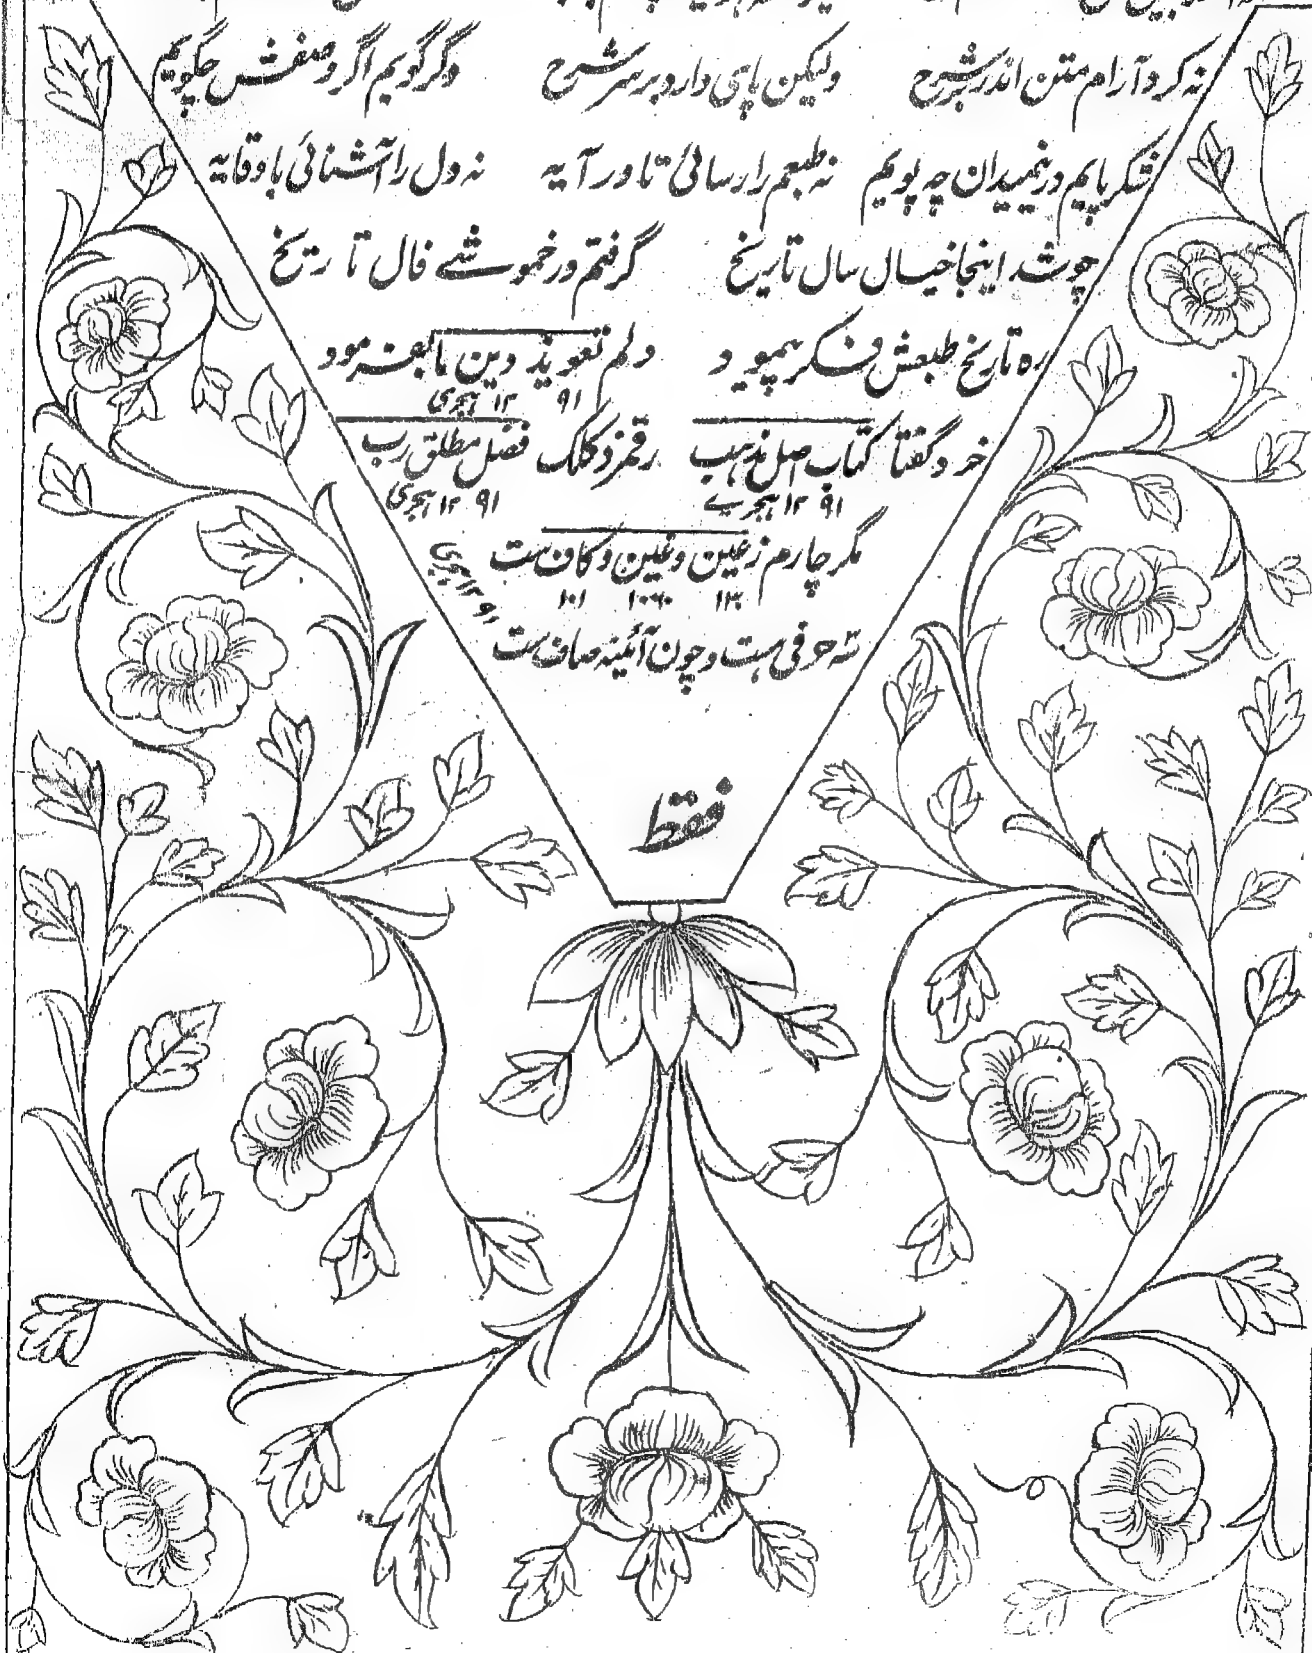 نہ کرد آرام متن اندر شرح ولیکن پای دارد بر سر شرح وگر گویم اگر وصفش چگویم
شکر پایم درنمیدان چہ پویم نہ طبعم را رسائی تا ور آیہ نہ دل را آشنائی با وقایہ
چو شد اینجا خیال سال تاریخ گرفتم در خموشے فال تاریخ
رہ تاریخ طبعش فکر پیمود دلم تعویذ دین ما بفرمود
۱۲۹۱ ہجری
خرد گفتا کتاب اصل مذہب رقم زد کلک فضل مطلق رب
۱۲۹۱ ہجرے ۱۲۹۱ ہجری
مگر چارم ز عین و غین و کاف ست
۱۳۰ ۱۰۶۰ ۱۰۱ ۱۲۹۱ ہجری
سہ حرفی ہست و چون آئینہ صاف ست
فقط